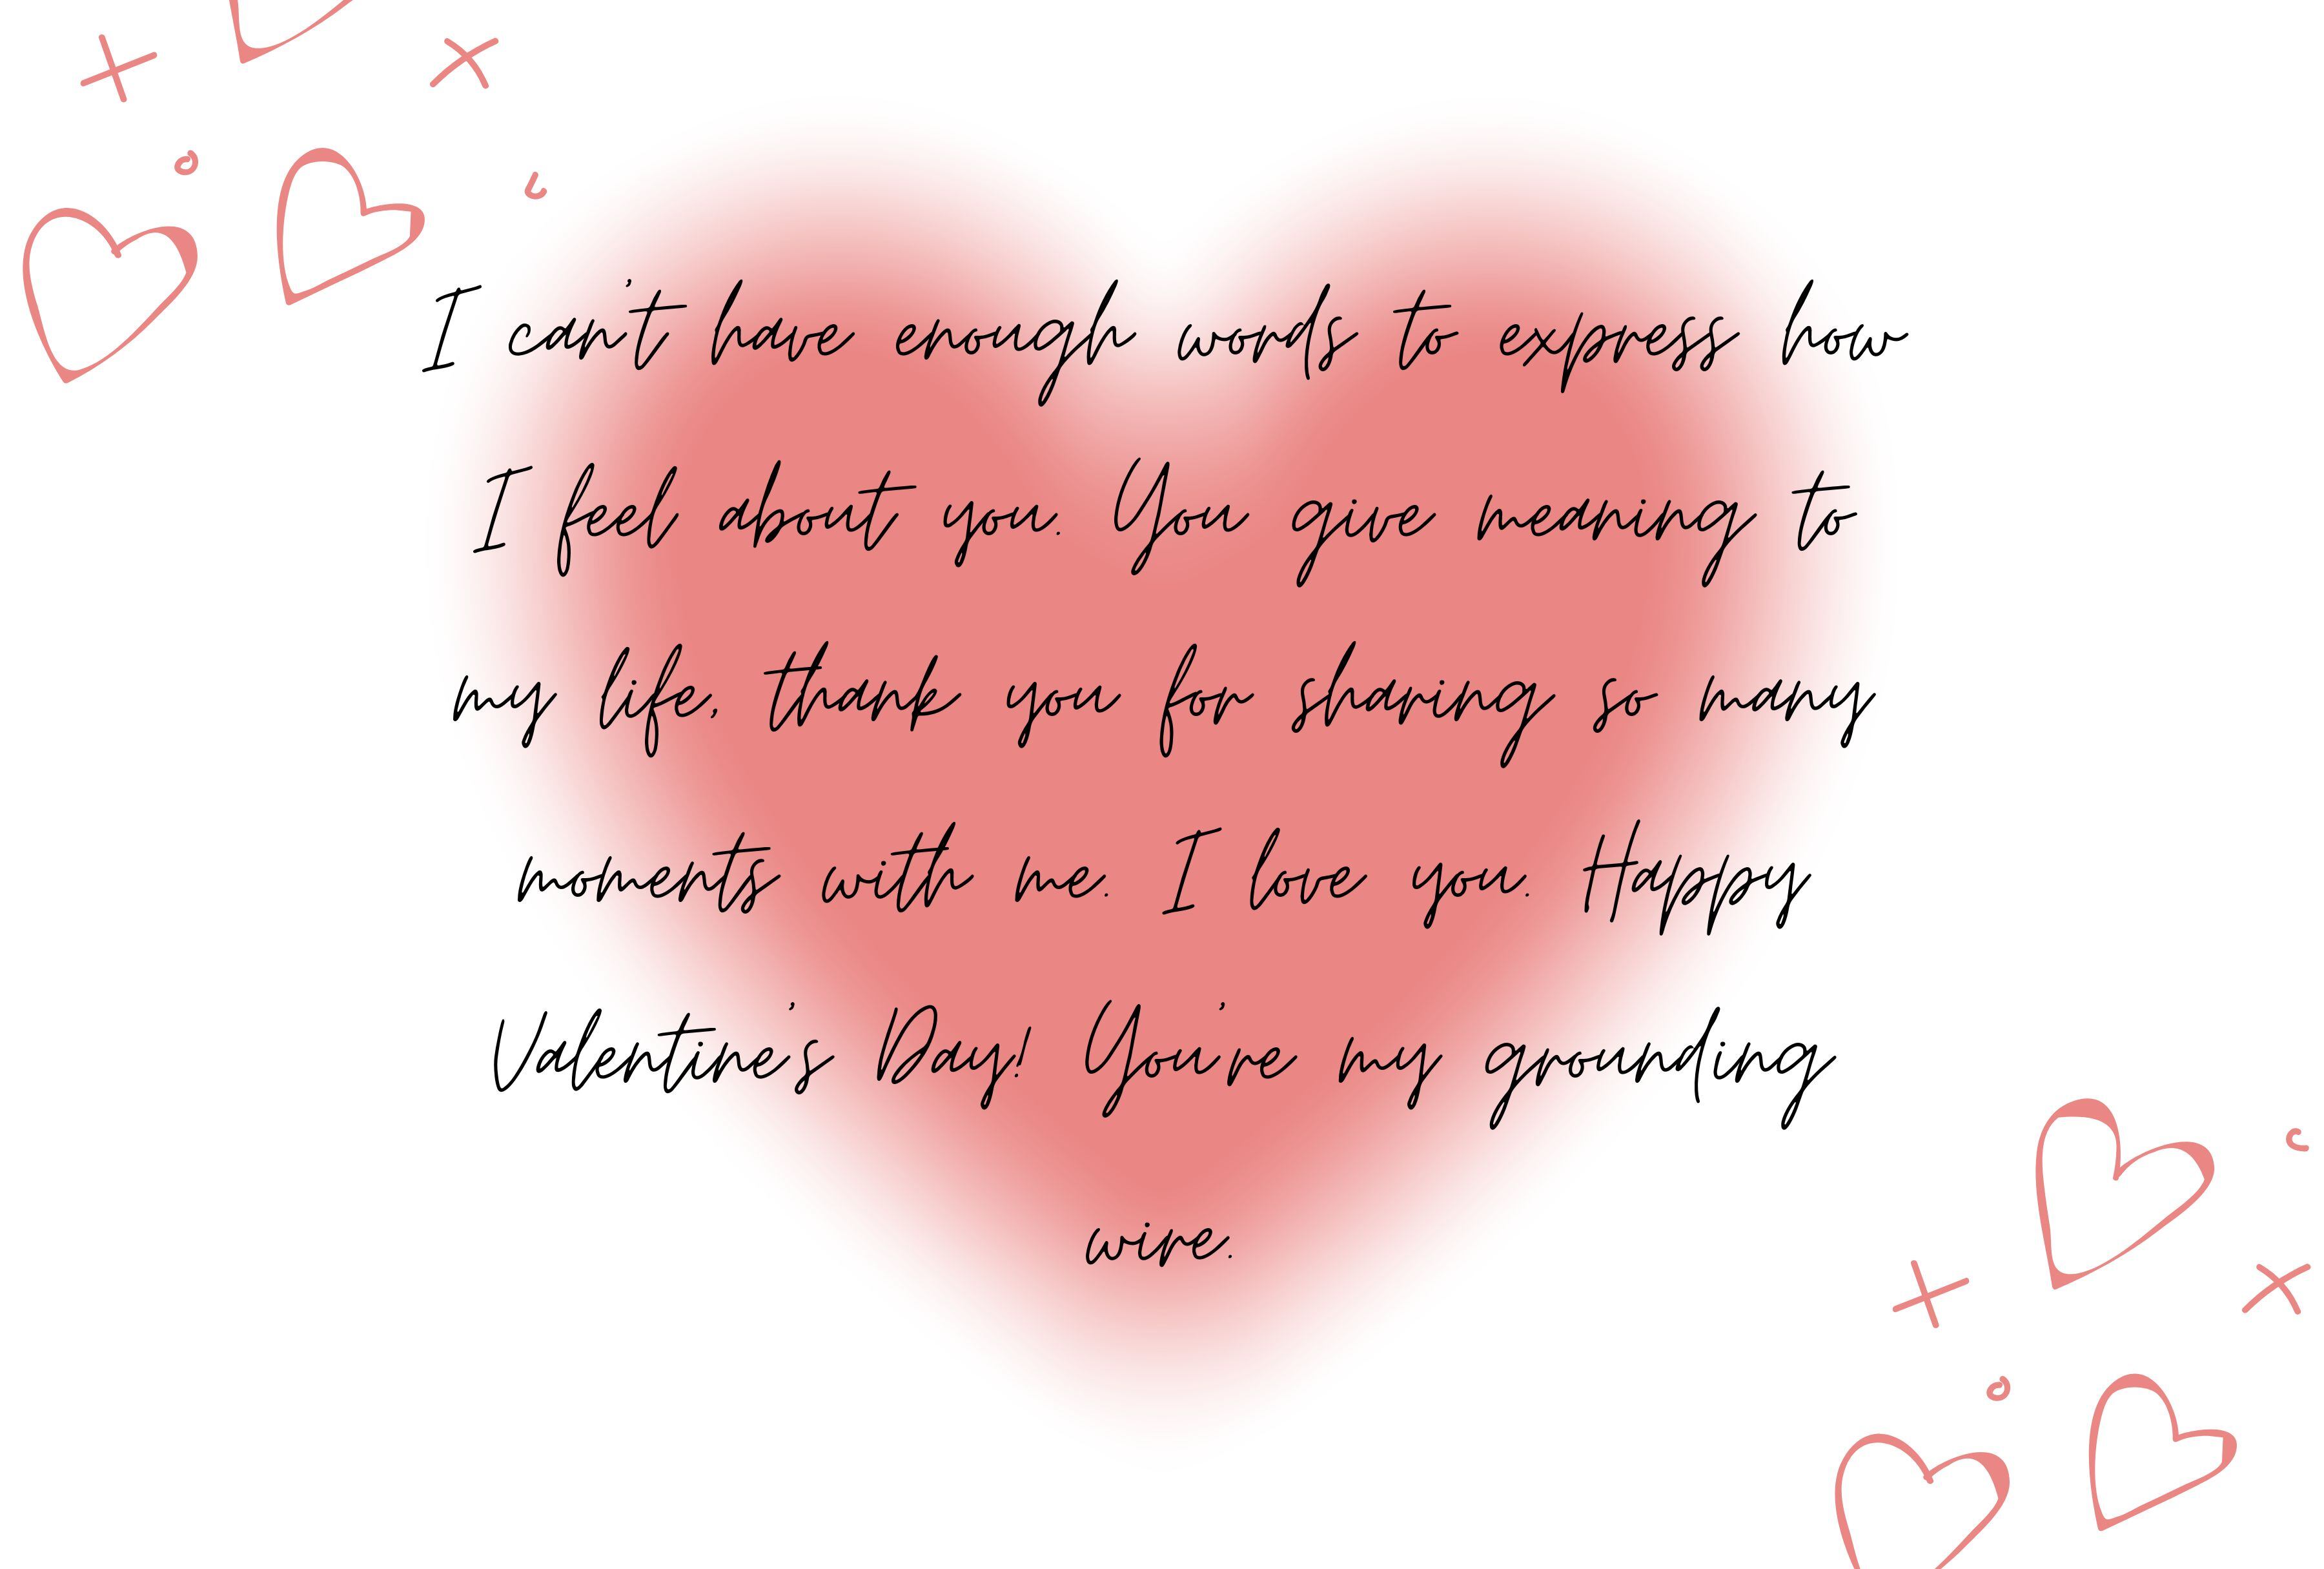 I can't have enough words to express how
I feel about you. You give meaning to
my life, thank you for sharing so many
moments with me. I love you. Happy
Valentine's Day! You're my grounding
wire.